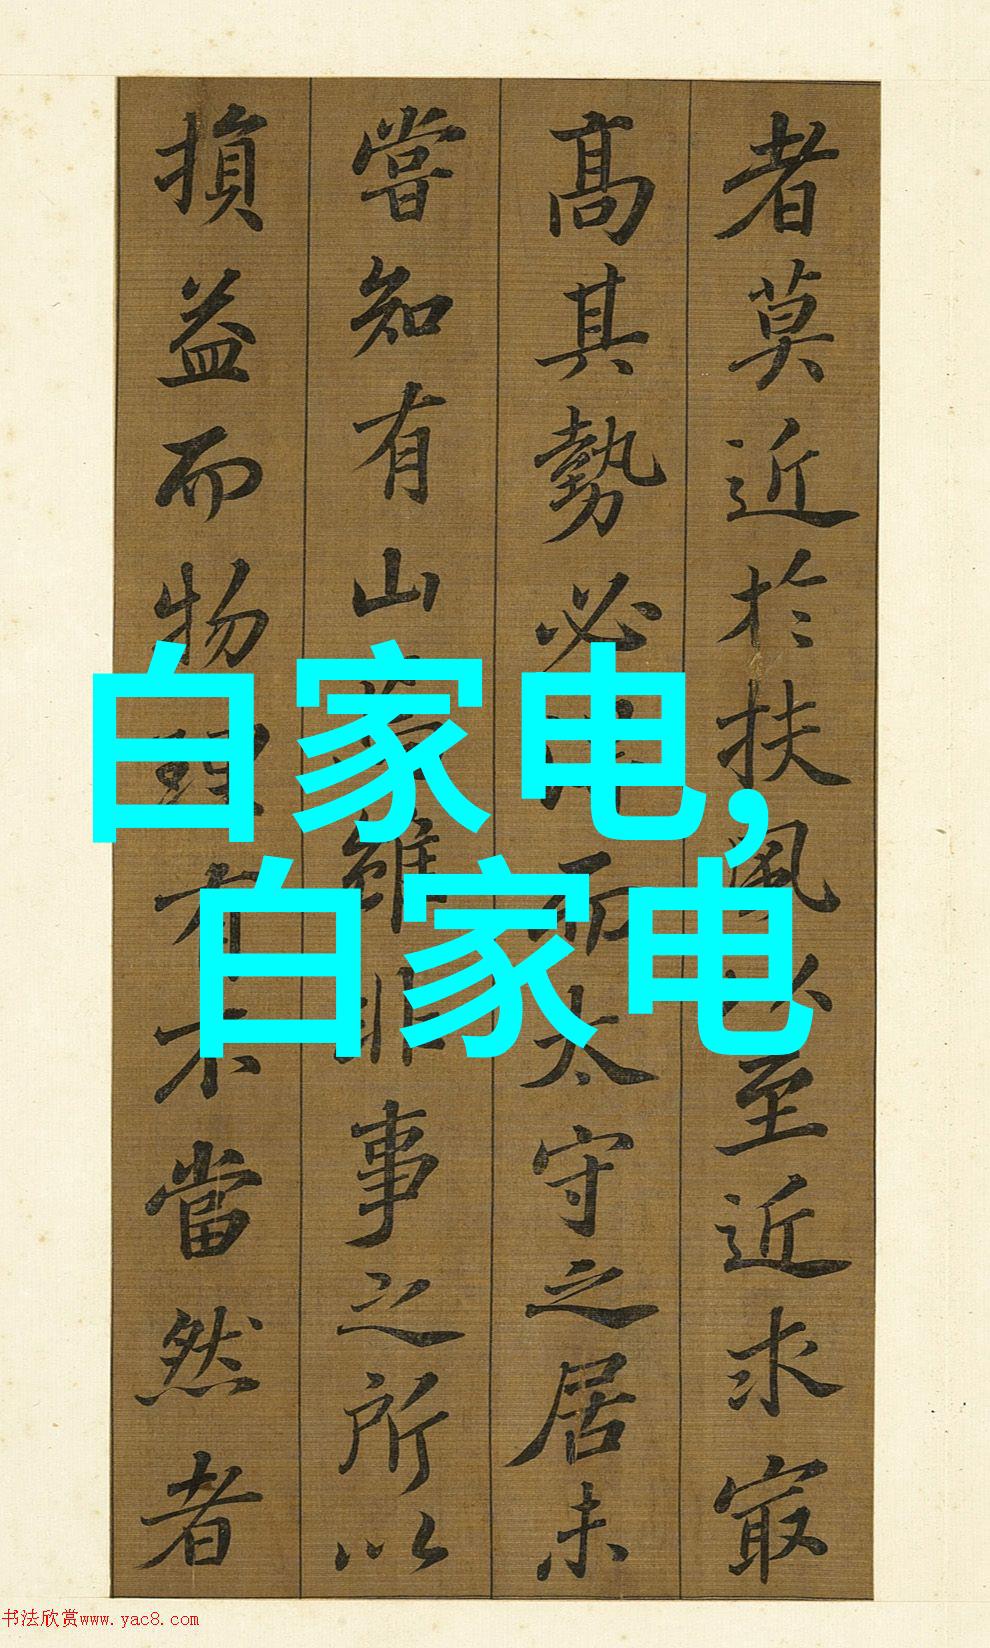 白家电,
白家电
者莫近於扶風以至近求最
高其勢必得而太守之居未
嘗知有山焉雖非事之所以
損益而物理有不當然者
书法欣赏www.yac8.com